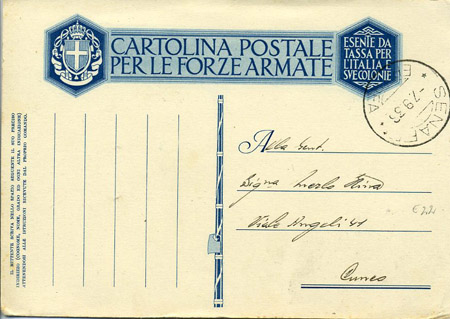 CARTOLINA POSTALE
PER LE FORZE ARMATE
ESENTE DA
TASSA PER
L'ITALIA E
SVE COLONIE
SENAF
-7.9.36
Alla Gent.
Signa
Viale Angeli 41
Cuneo
IL MITTENTE SCRIVA NELLO SPAZIO SEGUENTE IL SUO PRECISO
INDIRIZZO (COGNOME, NOME, GRADO ED OGNI ALTRA INDICAZIONE)
ATTENENDOSI ALLE ISTRUZIONI RICEVUTE DAL PROPRIO COMANDO.